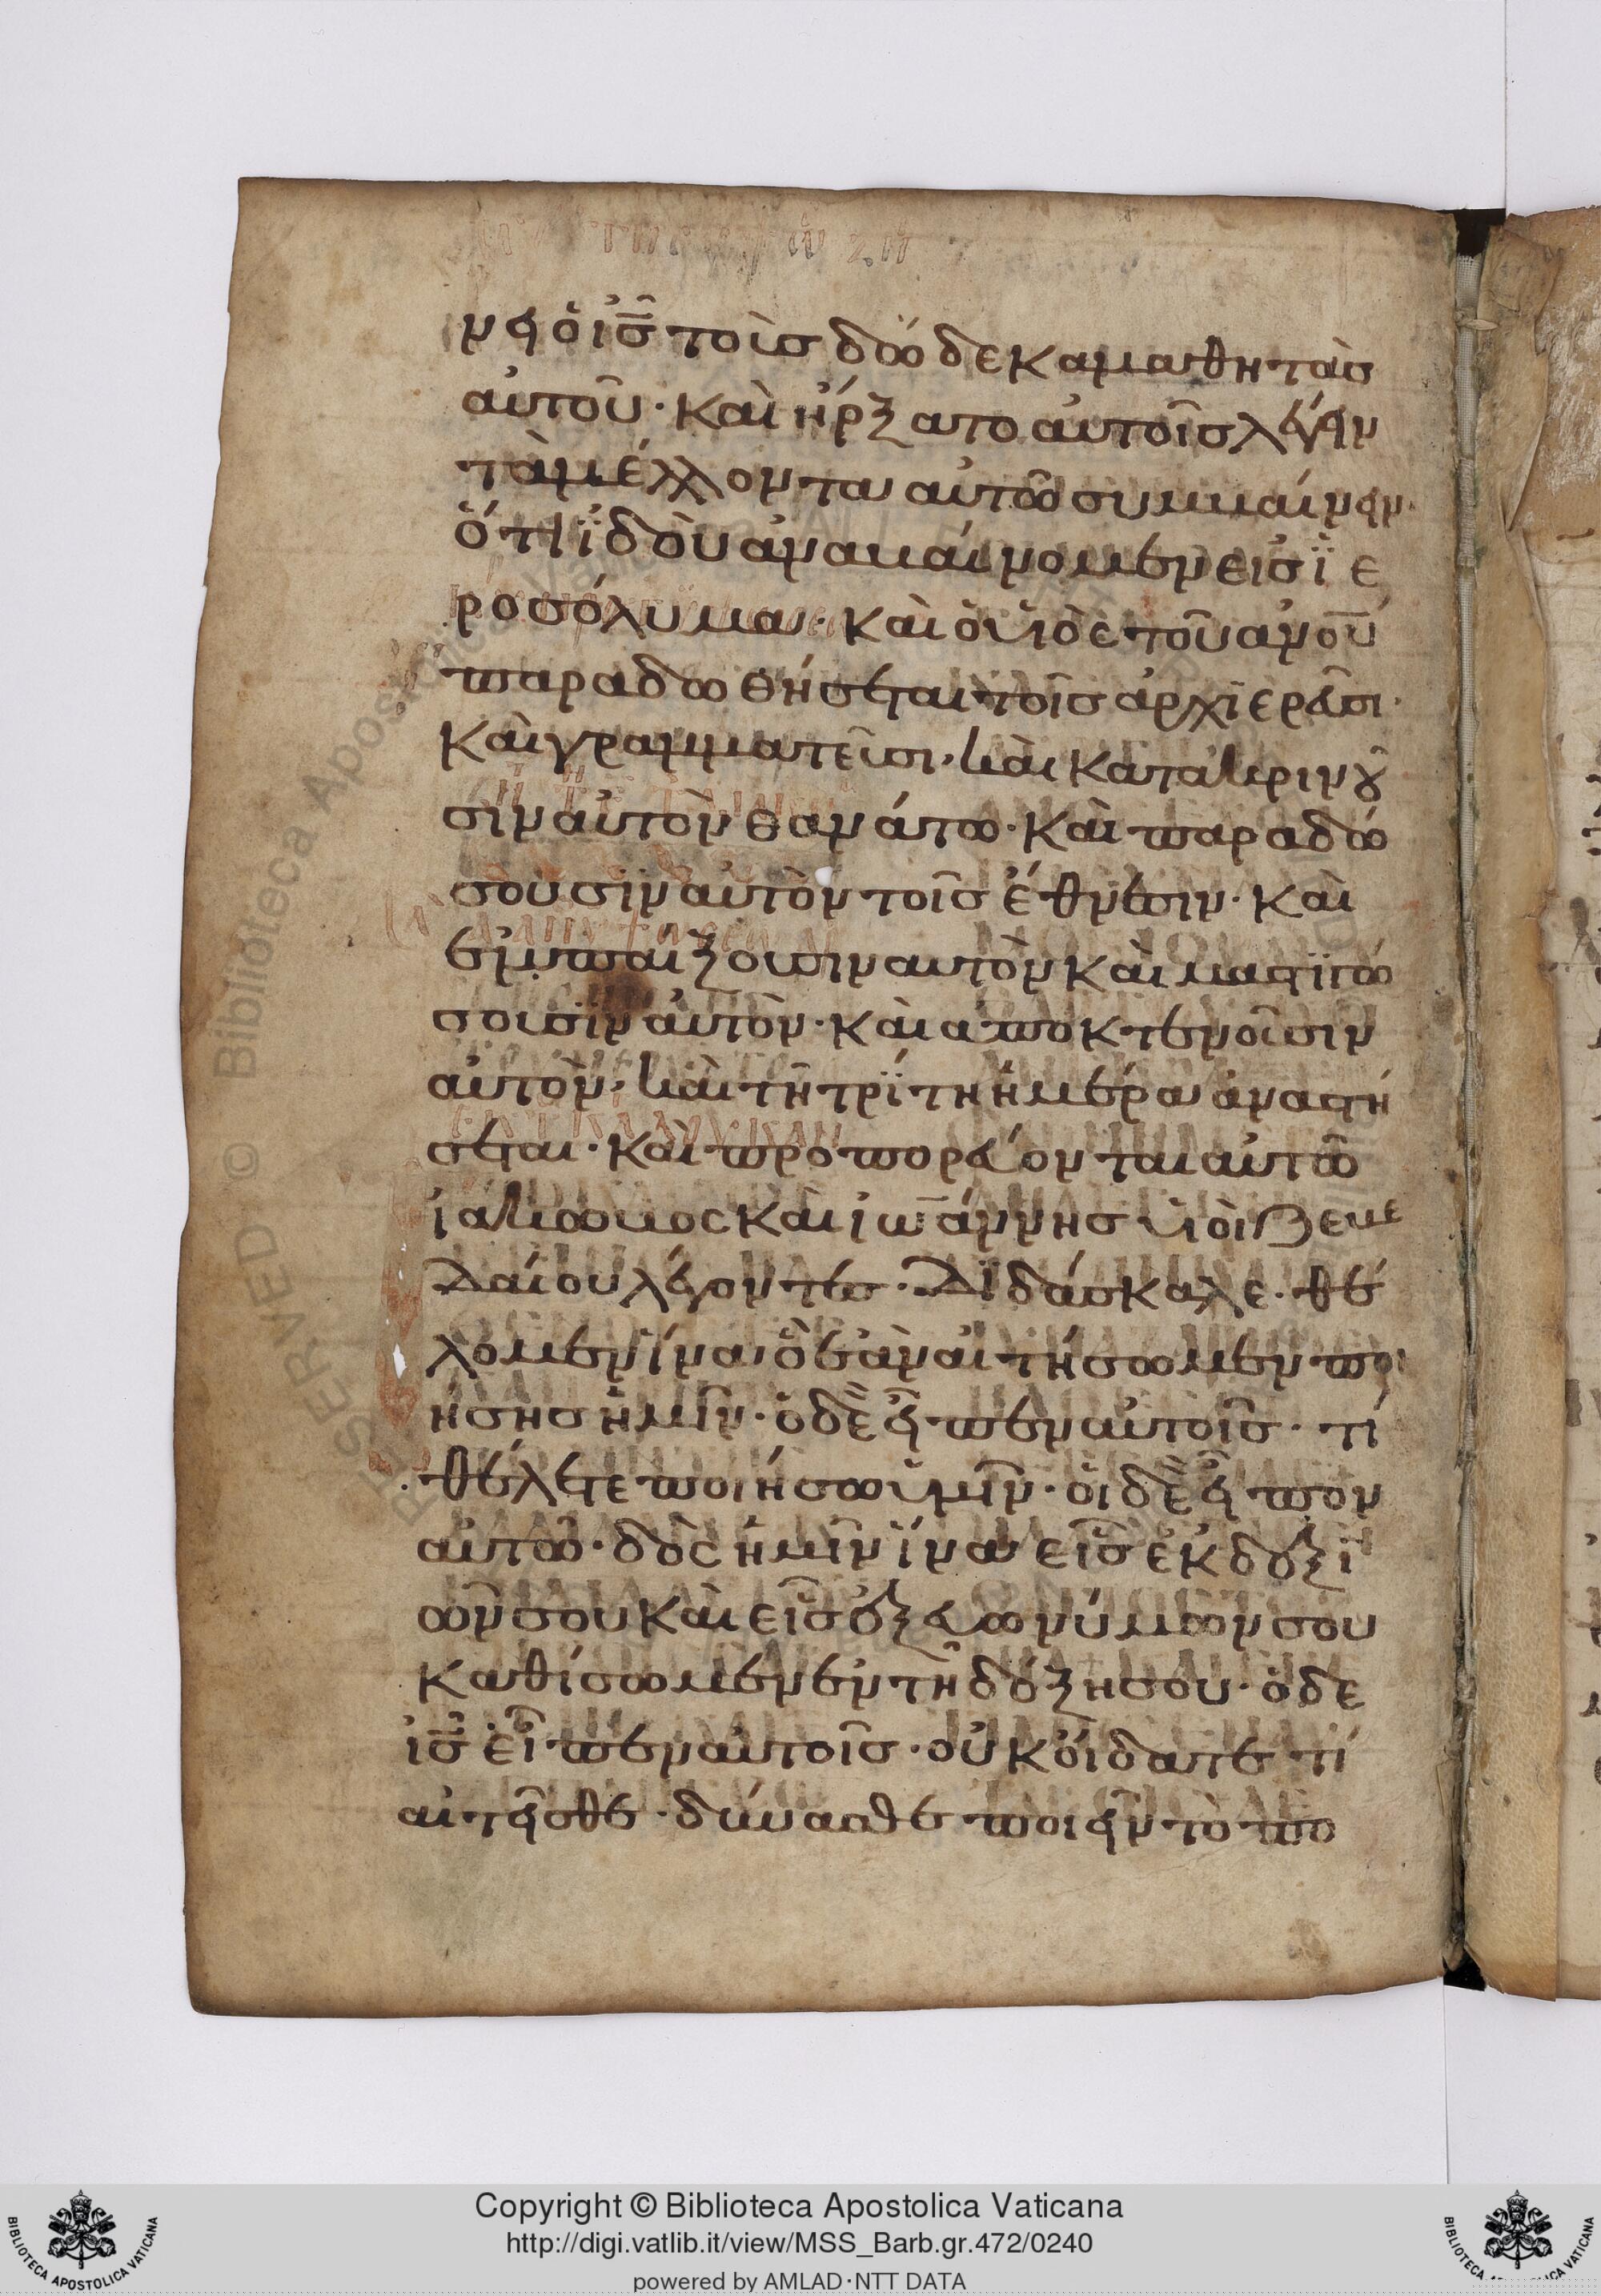 νει ὁ ις τοὺς δώδεκα μαθητὰς
αὐτοῦ· Καὶ ἤρξατο αὐτοῖς λέγειν
τὰ μέλλοντα αὐτῶ συμβαίνειν·
ὅτι ἰδοὺ ἀναβαίνομεν εἰς ϊε
ροσόλυμα· Καὶ ὁ υἱὸς τοῦ ανου
παραδωθήσεται τοῖς ἀρχιερεῦσι·
Καὶ γραμματεῦσι· καὶ κατακρινοῦ
σιν αὐτὸν θανάτω· Καὶ παραδώ
σουσιν αὐτὸν τοῖς ἔθνεσιν· Καὶ
ἐμπαίξουσιν αυτὸν Καὶ μαστιγώ
σουσιν αὐτὸν· Καὶ αποκτενοῦσιν
αὐτὸν· καὶ τῆ τρίτη ἡμέρα ἀναστή
σεται· Καὶ προπορεύονται αὐτῶ
ἰάκωβος Καὶ ἰωάννης υἱοὶ ζεβε
δαίου λέγοντες· Διδάσκαλε· θέ
λομεν ἵνα ὃ ἐὰν αἰτήσωμεν ποι
ήσης ἡμῖν· ὁ δὲ εἶπεν αὐτοῖς· τί
θέλετε ποιήσω ὑμῖν· οἱ δὲ εἶπον
αὐτῶ· δὸς ἡμῖν ἵνα εἷς ἐκ δεξι
ῶν σου Καὶ εἷς ἐξ εὐωνύμων σου
Καθίσωμεν ἐν τῆ δόξη σου· ὁ δε
ις εἶπεν αὐτοῖς· οὐκ οἴδατε τί
αἰτεῖσθε· δύνασθε ποιεῖν τὸ πο
Copyright © Biblioteca Apostolica Vaticana
http://digi.vatlib.it/view/MSS_Barb.gr.472/0240
powered by AMLAD·NTT DATA
BIBLIOTECA APOSTOLICA VATICANA
BIBLIOTECA APOSTOLICA VATICANA